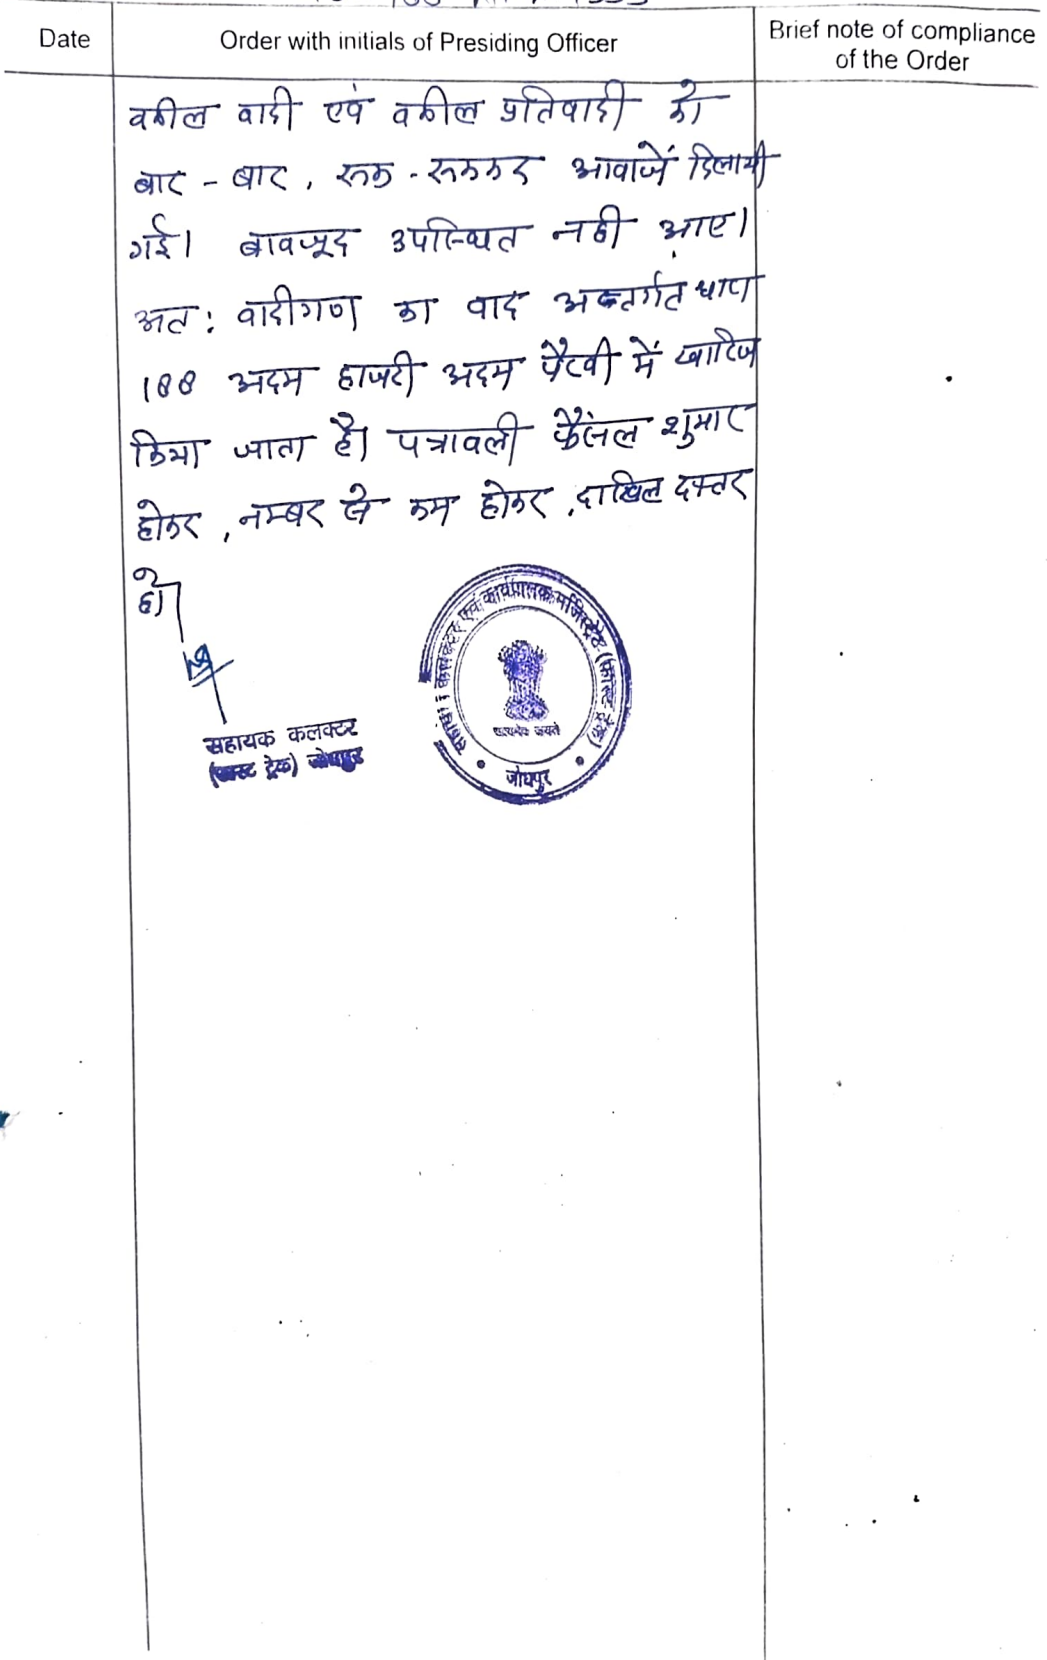 Date
Order with initials of Presiding Officer
Brief note of compliance
of the Order
वकील वादी एवं वकील प्रतिवादी को
बार - बार , रूक - रूककर आवाजें दिलायी
गई। बावजूद उपस्थित नही आए।
अत : वादीगण का वाद अन्तर्गत धारा
188 अदम हाजरी अदम पैरवी में खारिज
किया जाता है। पत्रावली फैसल शुमार
होकर , नम्बर से कम होकर , दाखिल दफ्तर
हो।
सहायक कलक्टर
(फास्ट ट्रेक) जोधपुर
कलक्टर एवं कार्यपालक मजिस्ट्रेट (फास्ट ट्रेक)
सत्यमेव जयते
जोधपुर